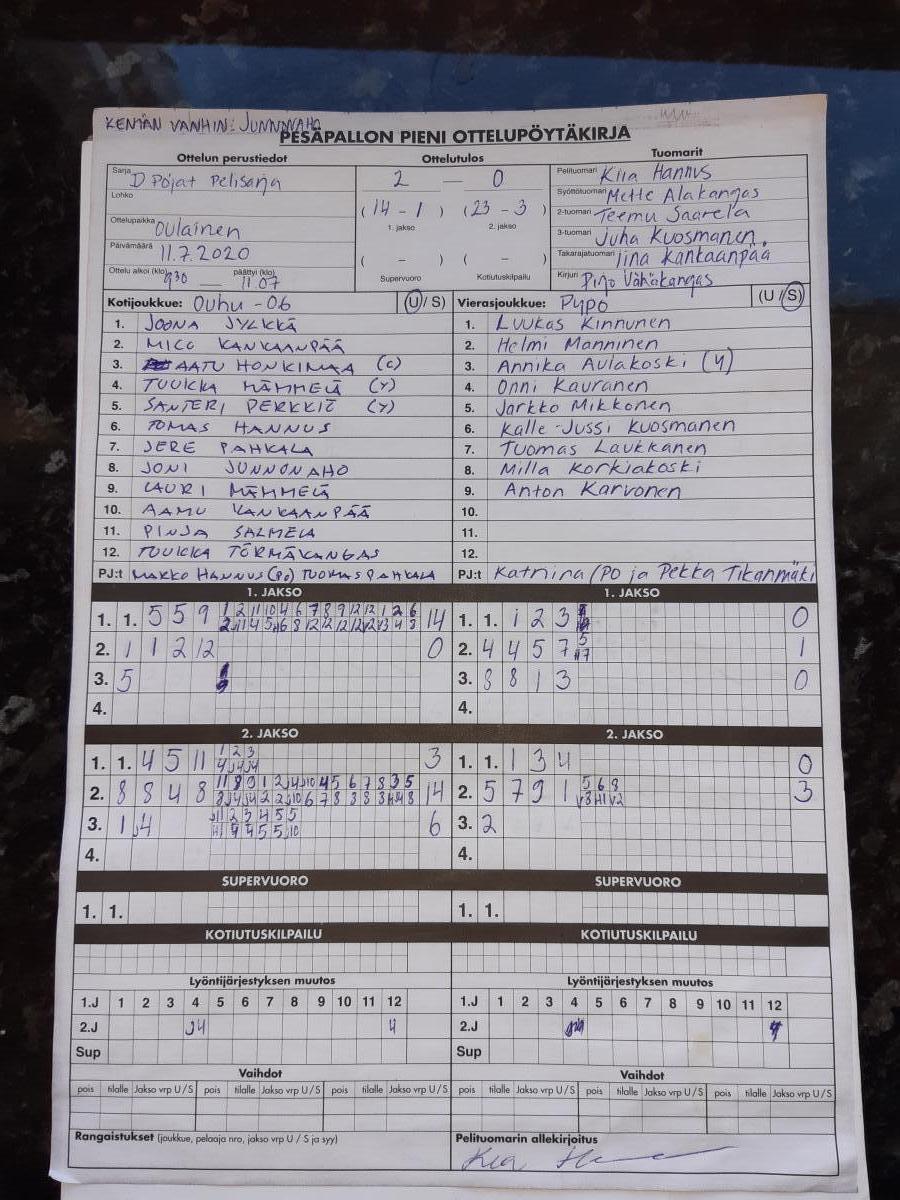 KENTÄN VANHIN: JUNNONAHO
PESÄPALLON PIENI OTTELUPÖYTÄKIRJA
Ottelun perustiedot
Sarja D Pojat Pelisarja
Lohko
Ottelupaikka Oulainen
Päivämäärä 11.7.2020
Ottelu alkoi (klo) 930 — päättyi (klo) 11.07
Ottelutulos
2 — 0
( 14 - 1 ) ( 23 - 3 )
1. jakso 2. jakso
( - ) ( - )
Supervuoro Kotiutuskilpailu
Tuomarit
Pelituomari Kiia Hannus
Syöttötuomari Mette Alakangas
2-tuomari Teemu Saarela
3-tuomari Juha Kuosmanen
Takarajatuomari Iina Kankaanpää
Kirjuri Pirjo Vähäkangas
Kotijoukkue: Ouhu -06 (U/ S)
1. JOONA JYLKKÄ
2. MICO KANKAANPÄÄ
3. AATU HONKIMAA (C)
4. TUUKKA MÄMMELÄ (Y)
5. SANTERI PERKKIÖ (Y)
6. TOMAS HANNUS
7. JERE PAHKALA
8. JONI JUNNONAHO
9. LAURI MÄMMELÄ
10. AAMU KANKAANPÄÄ
11. PINJA SALMELA
12. TUUKKA TÖRMÄKANGAS
PJ:t MARKO HANNUS (PO) TUOMAS PAHKALA
Vierasjoukkue: Pypo (U / S)
1. Luukas Kinnunen
2. Helmi Manninen
3. Annika Aulakoski (Y)
4. Onni Kauranen
5. Jarkko Mikkonen
6. Kalle-Jussi Kuosmanen
7. Tuomas Laukkanen
8. Milla Korkiakoski
9. Anton Karvonen
10.
11.
12.
PJ:t Katriina (PO ja Pekka Tikanmäki
1. JAKSO
1. 1. 5 5 9 14
2. 1 1 2 12 0
3. 5
4.
1. JAKSO
1. 1. 1 2 3 0
2. 4 4 5 7 1
3. 8 8 1 3 0
4.
2. JAKSO
1. 1. 4 5 11 3
2. 8 8 4 8 14
3. 1 J4 6
4.
2. JAKSO
1. 1. 1 3 4 0
2. 5 7 9 1 3
3. 2
4.
SUPERVUORO
1. 1.
SUPERVUORO
1. 1.
KOTIUTUSKILPAILU
KOTIUTUSKILPAILU
Lyöntijärjestyksen muutos
1.J 1 2 3 4 5 6 7 8 9 10 11 12
2.J J4 4
Sup
Lyöntijärjestyksen muutos
1.J 1 2 3 4 5 6 7 8 9 10 11 12
2.J
Sup
Vaihdot
pois tilalle Jakso vrp U / S pois tilalle Jakso vrp U / S pois tilalle Jakso vrp U / S
Vaihdot
pois tilalle Jakso vrp U / S pois tilalle Jakso vrp U / S pois tilalle Jakso vrp U / S
Rangaistukset (joukkue, pelaaja nro, jakso vrp U / S ja syy)
Pelituomarin allekirjoitus